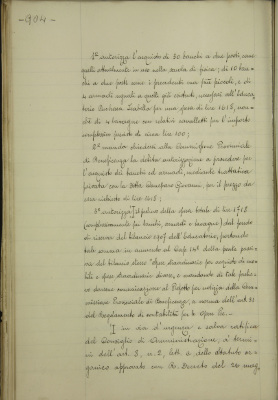 -904-
1° autorizza l'acquisto di 30 banchi a due posti, come
quelli attualmente in uso nella scuola di fisica; di 10 ban-
chi a due posti come i precedenti ma più piccoli, e di
4 armadi uguali a quelli già ceduti, necessari all'Educa-
torio
per una spesa di lire 1618, non-
chè di 4 lavagne con relativi cavalletti per l'importo
complessivo di circa lire 100;
2° mandar chiedersi alla Commissione Provinciale
di Beneficenza la debita autorizzazione a procedere per
l'acquisto dei banchi ed armadi, mediante trattativa
privata con la ditta Giovanni, per il prezzo da
essa richiesto di lire 1618;
3° autorizza il prelievo della spesa totale di lire 1718
(complessivamente pei banchi, armadi e lavagne) dal fondo
di riserva del bilancio 1907 dell'Educatorio, portando
tale somma in aumento al Cap. 14° della parte passi-
va del bilancio stesso "Spese straordinarie per acquisto di mo-
bili e spese straordinarie diverse, e mandando di tale prele-
vo darsene comunicazione al Prefetto per notizia della Com-
missione Provinciale di Beneficenza, a norma dell'art. 33
del Regolamento di contabilità per le Opere Pie.
I in via d'urgenza e salvo ratifica
del Consiglio di Amministrazione, a termi-
ni dell'art. 3, n. 2, lett. a dello Statuto or-
ganico approvato con R. Decreto del 20 mag